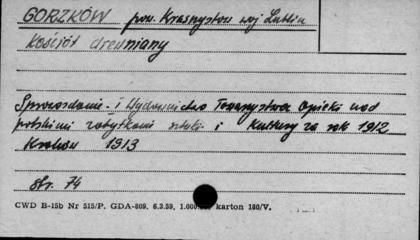 GORZKÓW pow. Krasnystaw woj Lublin
Kościół drewniany
Sprawozdanie i Wydawnictwo Towarzystwa Opieki nad
polskimi zabytkami sztuki i Kultury za rok 1912
Kraków 1913
Str. 74
CWD B-15b Nr 515/P. GDA-809. 6.3.59, 1.000 karton 180/V.